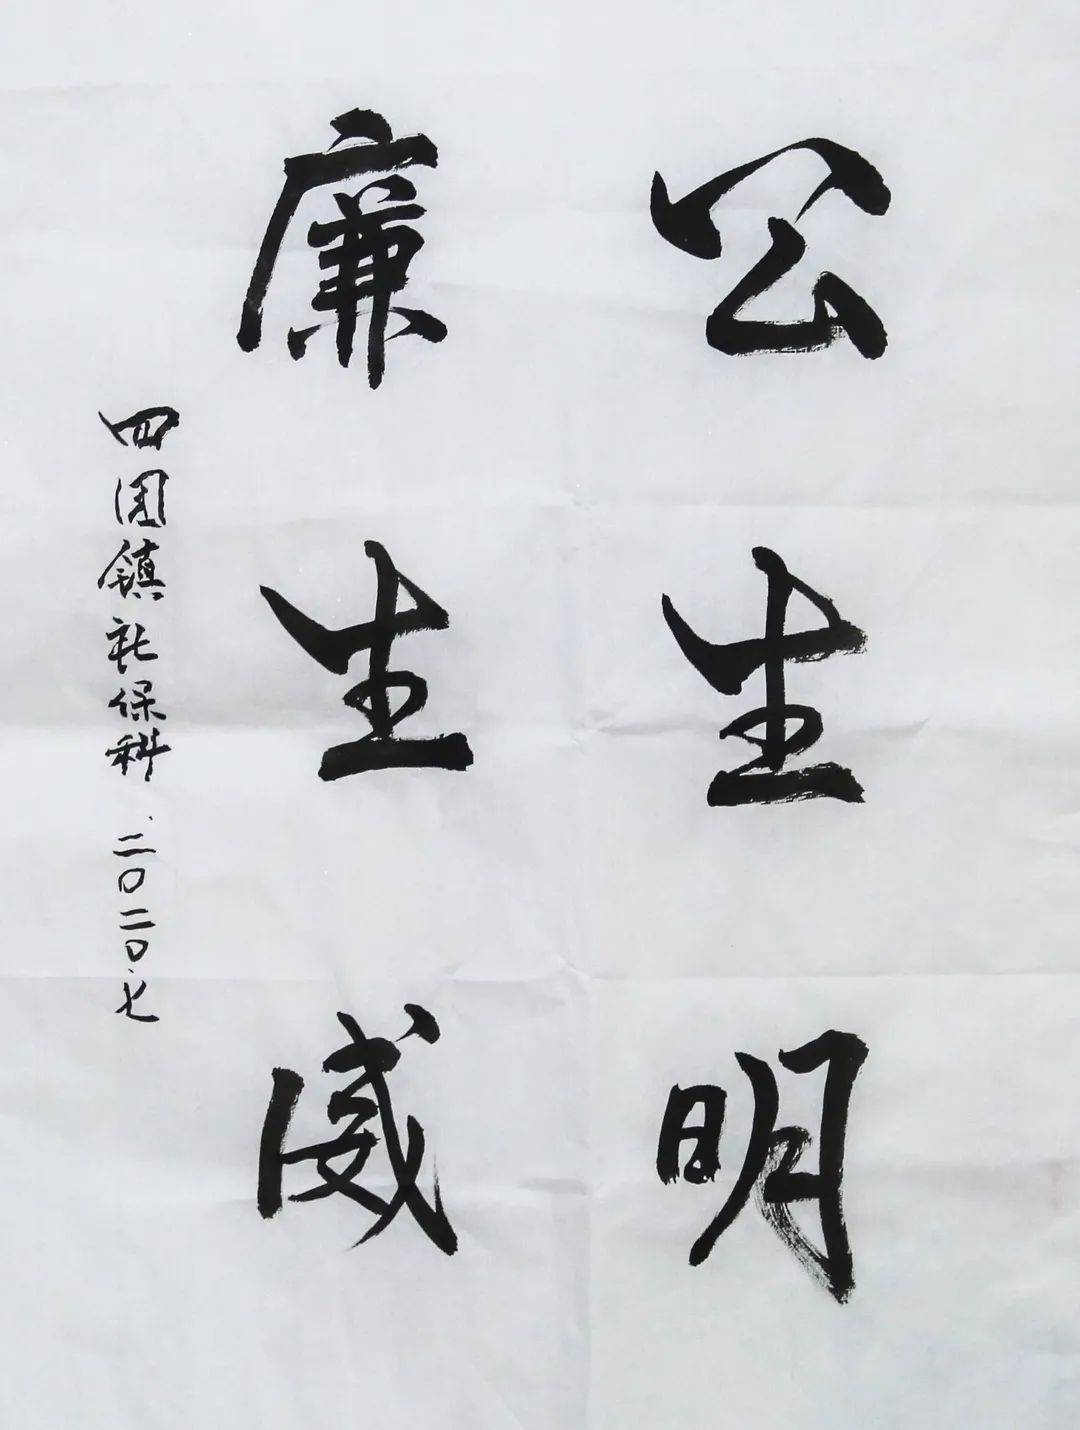 公生明
廉生威
四团镇社保科 二〇二〇.七